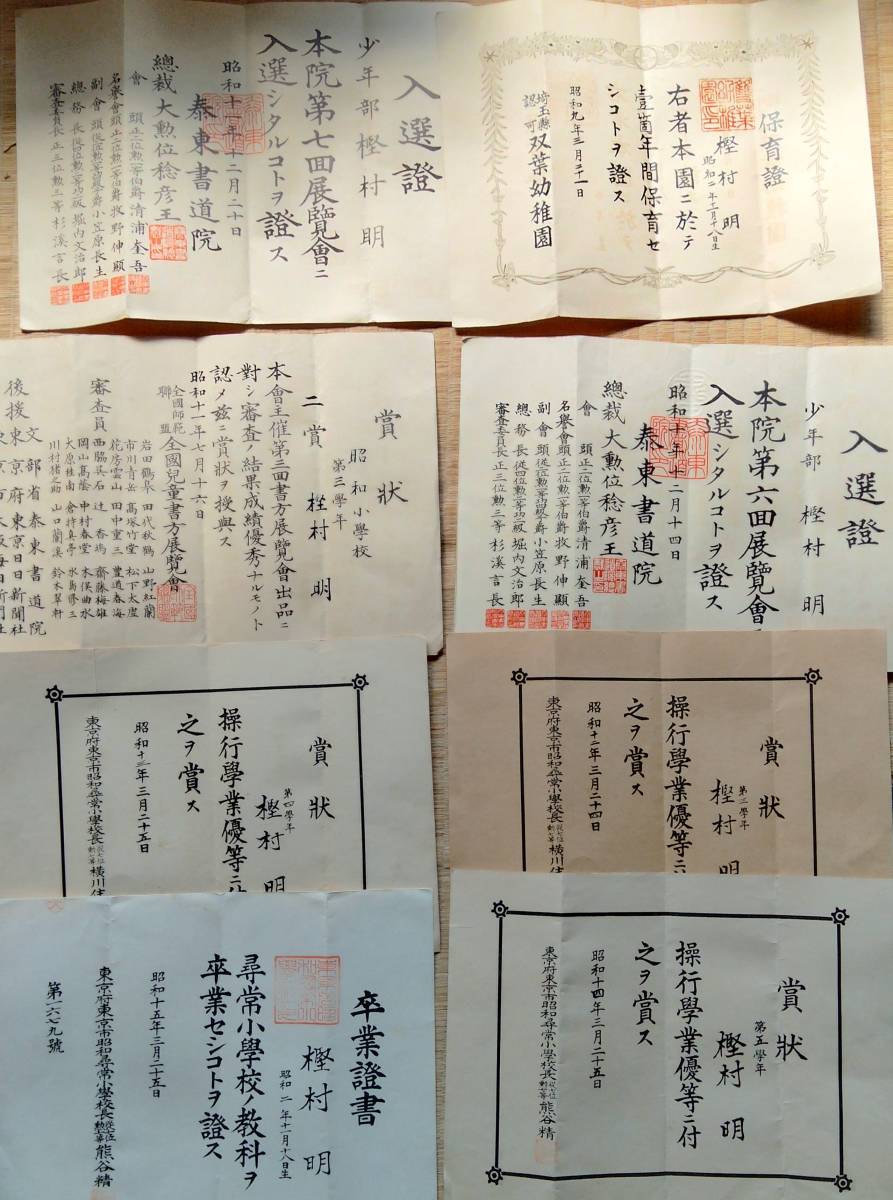 保育證
樫村明
昭和二年十一月十八日生
右者本園ニ於テ
壹箇年間保育セ
シコトヲ證ス
昭和九年三月二十一日
埼玉縣認可
双葉幼稚園
入選證
少年部 樫村明
本院第七回展覽會ニ
入選シタルコトヲ證ス
昭和十一年十二月二十日
泰東書道院
總裁大勲位稔彦王
會頭正二位勲一等伯爵清浦奎吾
名譽會頭正二位勲一等伯爵牧野伸顯
副會頭
小笠原長生
總務長
堀内文治郎
審査委員長正三位勲三等杉溪言長
入選證
少年部 樫村明
本院第六回展覽會
入選シタルコトヲ證ス
昭和十年十二月十四日
泰東書道院
總裁大勲位稔彦王
會頭正二位勲一等伯爵清浦奎吾
名譽會頭正二位勲一等伯爵牧野伸顯
副會頭
小笠原長生
總務長
堀内文治郎
審査委員長正三位勲三等杉溪言長
賞狀
昭和小學校
第三學年
二賞 樫村明
本會主催第三回書方展覽會出品ニ
對シ審査ノ結果成績優秀ナルモノト
認メ茲ニ賞狀ヲ授與ス
昭和十一年七月十六日
全國師範聯盟
全國兒童書方展覽會
審査員
岩田鶴皐 田代秋鶴 山野紅蘭
市川青岳 高塚竹堂 松下大虚
花房雲山 田中重三 豊道春海
西脇呉石 辻香塢 齋藤梅雄
岡山高蔭 中村春堂 木俣曲水
大原桂南 倉持真亭 水島修三
川村猪之助 山口蘭溪 鈴木翠軒
後援
文部省 泰東書道院
東京府 東京日日新聞社
東京市 大阪毎日新聞社
賞狀
第三學年
樫村明
操行學業優等ニ付
之ヲ賞ス
昭和十二年三月二十四日
東京府東京市昭和尋常小學校長
横川
賞狀
第四學年
樫村明
操行學業優等ニ付
之ヲ賞ス
昭和十三年三月二十五日
東京府東京市昭和尋常小學校長
横川
賞狀
第五學年
樫村明
操行學業優等ニ付
之ヲ賞ス
昭和十四年三月二十五日
東京府東京市昭和尋常小學校長
熊谷精
卒業證書
樫村明
昭和二年十一月十八日生
尋常小學校ノ教科ヲ
卒業セシコトヲ證ス
昭和十五年三月二十五日
東京府東京市昭和尋常小學校長
熊谷精
第一六七九號